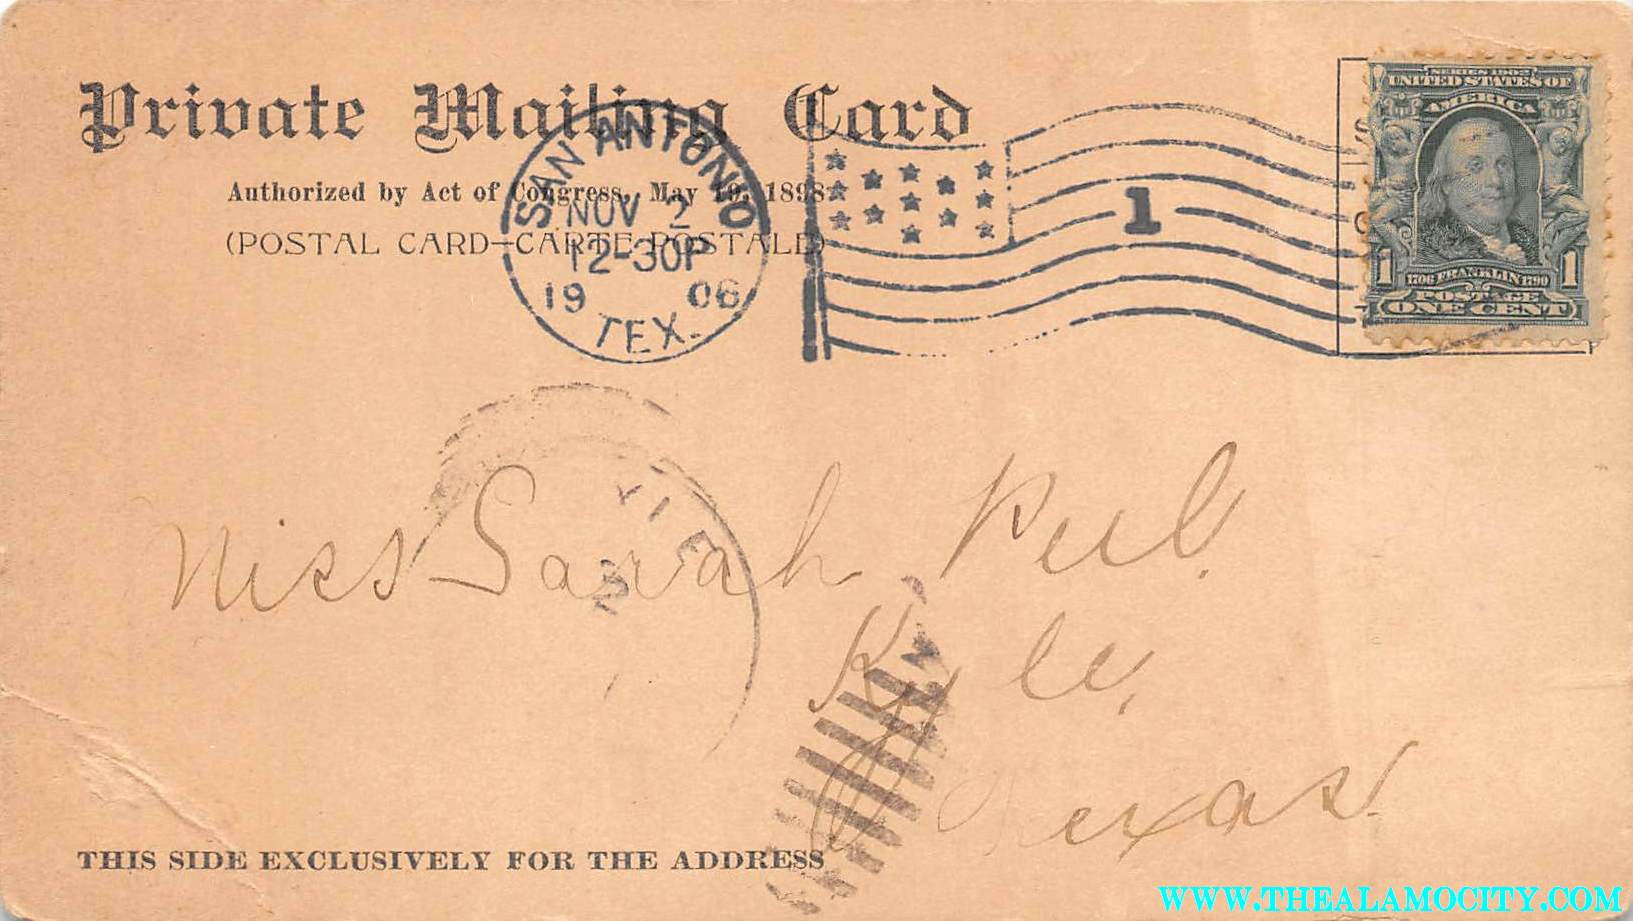 Private Mailing Card
Authorized by Act of Congress, May 19, 1898.
(POSTAL CARD—CARTE POSTALE)
SAN ANTONIO
NOV 2
12-30P
19 06
TEX.
1
SERIES 1902
UNITED STATES OF
AMERICA
1 1706 FRANKLIN 1790 1
POSTAGE
ONE CENT
Miss Sarah
Kyle,
Texas.
THIS SIDE EXCLUSIVELY FOR THE ADDRESS
WWW.THEALAMOCITY.COM